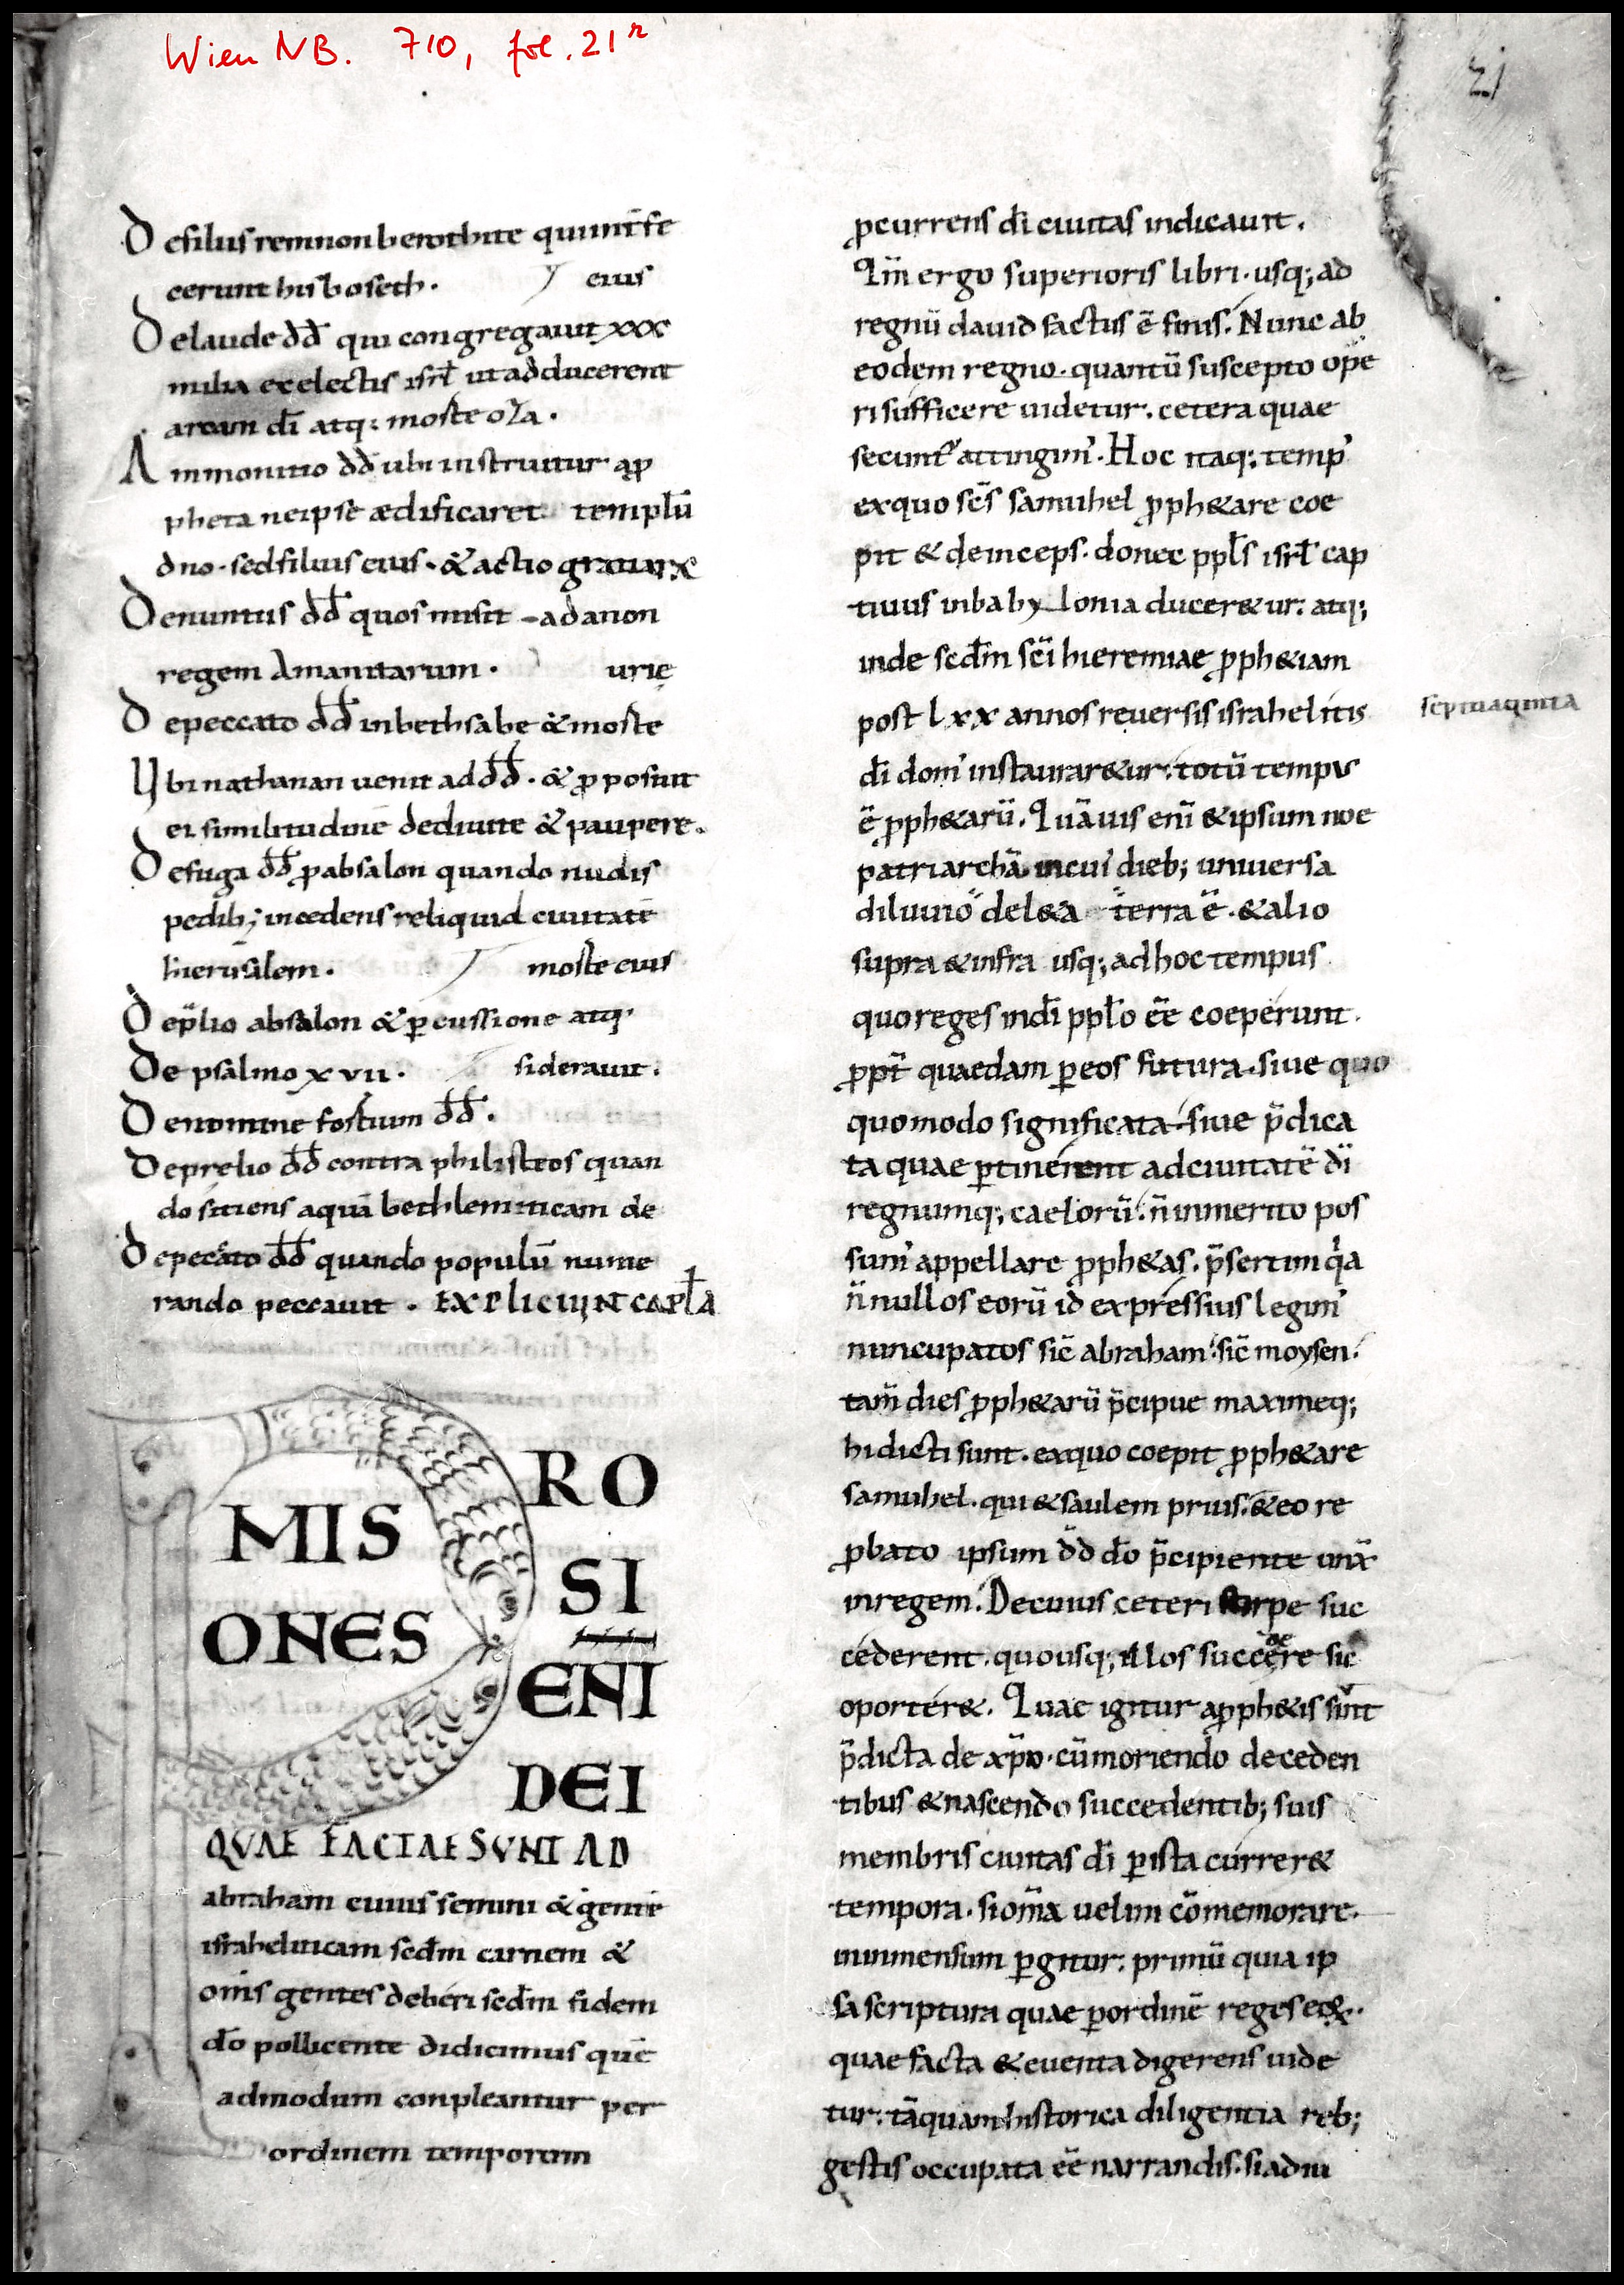 Wien NB. 710, fol. 21r
21
De filius remnon berothite qui int̄fe
cerunt hisboseth. eius
De laude dd̄ qui congregauit xxx
milia ex electis isrł ut adducerent
arcam dī atq; morte oza.
Ammonitio dd̄ ubi instruitur a p̱ro
pheta ne ipse ædificaret templū
dno. sed filius eius. & actio gratiarꝝ
De nuntiis dd̄ quos misit ad anon
regem Amanitarum. urię
De peccato dd̄ in bethsabe & morte
Ubi nathanan uenit ad dd̄. & ꝓposuit
ei similitudinē de diuite & paupere.
De fuga dd̄ ꝓ absalon quando nudis
pedib; incedens reliquid ciuitatē
hierusalem. morte eius
De p̄lio absalon & ꝑcussione atq;
De psalmo xvii. siderauit.
De nomine fortium dd̄.
De prelio dd̄ contra philisteos quan
do sitiens aquā bethlemiticam de
De peccato dd̄ quando populū nume
rando peccauit. EXPLICIUNT CAPŁA
PRO
MIS SI
ONES ENI
DEI
QVAE FACTAE SVNT AD
abraham cuius semini & gentē
israheliticam scdm̄ carnem &
om̄s gentes deberi scdm̄ fidem
dō pollicente didicimus quē
admodum conpleantur per
ordinem temporum
ꝓcurrens dī ciuitas indicauit.
Qm̄ ergo superioris libri. usq; ad
regnū dauid factus ē finis. Nunc ab
eodem regno. quantū suscepto ope
ri sufficere uidetur. cetera quae
secunt᷒ attingim᷒. Hoc itaq; temp᷒
ex quo scs̄ samuhel ꝓph&are coe
pit & deinceps. donec ppłs isrł cap
tiuus in babylonia ducer&ur. atq;
inde scdm̄ scī hieremiae ꝓph&iam
post lxx annos reuersis israhelitis
septuaginta
dī dom᷒ instaurar&ur. totū tempus
ē ꝓph&arū. Quāuis enī & ipsum noe
patriarchā in cui᷒ dieb; uniuersa
diluuio del&a terra ē. & alio
supra & infra usq; ad hoc tempus
quo reges in dī ppło ēe coeperunt.
ꝓpt̄ quaedam ꝑ eos futura. siue quo
quomodo significata. siue p̄dica
ta quae ꝑtinerent ad ciuitatē dī
regnumq; caelorū. n̄ inmerito pos
sum᷒ appellare ꝓph&as. p̄sertim qa
n̄nullos eorū id expressius legim᷒
nuncupatos sic̄ abraham. sic̄ moysen.
tam̄ dies ꝓph&arū p̄cipue maximeq;
hi dicti sunt. ex quo coepit ꝓph&are
samuhel. qui & saulem prius. & eo re
ꝓbato ipsum dd̄ dō p̄cipiente unx̄
in regem. De cuius ceteri stirpe suc
cederent. quousq; illos succedere sic
oporter&. Quae igitur a ꝓph&is sint
p̄dicta de xp̄o. cū moriendo deceden
tibus & nascendo succedentib; suis
membris ciuitas dī ꝑ ista currer&
tempora. si om̄a uelim cōmemorare.
in inmensum ꝑgitur. primū quia ip
sa scriptura quae ꝑ ordinē reges eoꝝ.
quae facta & euenta digerens uide
tur. tāquam historica diligentia reb;
gestis occupata ēe narrandis. si adiu